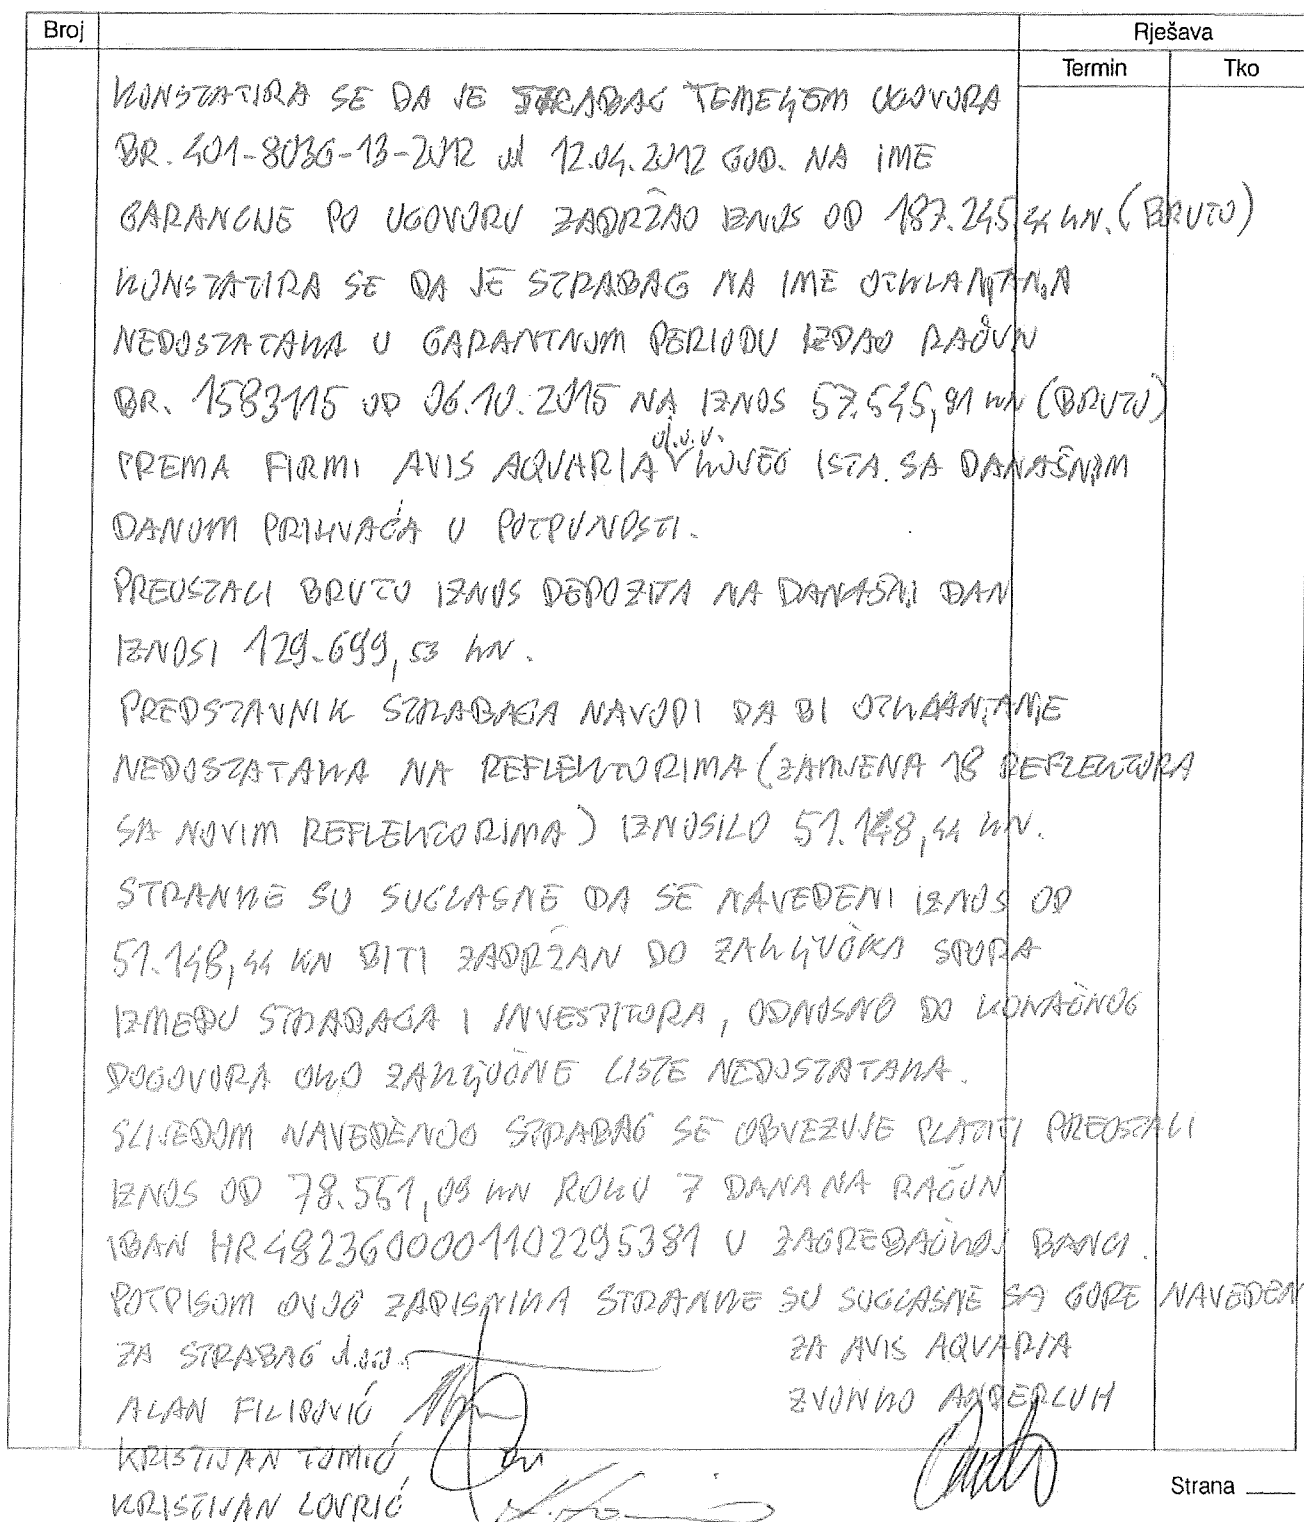 Broj Rješava
Termin Tko
KONSTATIRA SE DA JE STRABAG TEMELJEM UGOVORA
BR. 401-8036-13-2012 od 12.04.2012 GOD. NA IME
GARANCIJE PO UGOVORU ZADRŽAO IZNOS OD 187.245,44 KN. (BRUTO)
KONSTATIRA SE DA JE STRABAG NA IME OTKLANJANJA
NEDOSTATAKA U GARANTNOM PERIODU IZDAO RAČUN
BR. 1583115 OD 06.10.2015 NA IZNOS 57.545,91 KN (BRUTO)
PREMA FIRMI AVIS AQVARIA d.o.o. KOJEG ISTA SA DANAŠNJIM
DANOM PRIHVAĆA U POTPUNOSTI.
PREOSTALI BRUTO IZNOS DEPOZITA NA DANAŠNJI DAN
IZNOSI 129.699,53 KN.
PREDSTAVNIK STRABAGA NAVODI DA BI OTKLANJANJE
NEDOSTATAKA NA REFLEKTORIMA (ZAMJENA 18 REFLEKTORA
SA NOVIM REFLEKTORIMA) IZNOSILO 51.148,44 KN.
STRANKE SU SUGLASNE DA SE NAVEDENI IZNOS OD
51.148,44 KN BITI ZADRŽAN DO ZAKLJUČKA SPORA
IZMEĐU STRABAGA I INVESTITORA, ODNOSNO DO KONAČNOG
DOGOVORA OKO ZAKLJUČNE LISTE NEDOSTATAKA.
SLIJEDOM NAVEDENOG STRABAG SE OBVEZUJE PLATITI PREOSTALI
IZNOS OD 78.551,09 KN ROKU 7 DANA NA RAČUN
IBAN HR4823600001102295381 U ZAGREBAČKOJ BANCI.
POTPISOM OVOG ZAPISNIKA STRANKE SU SUGLASNE SA GORE NAVEDEN
ZA STRABAG d.o.o. ZA AVIS AQVARIA
ALAN FILIPOVIĆ ZVONKO ANDERLUH
KRISTIJAN TOMIĆ
KRISTIJAN LOVRIĆ
Strana